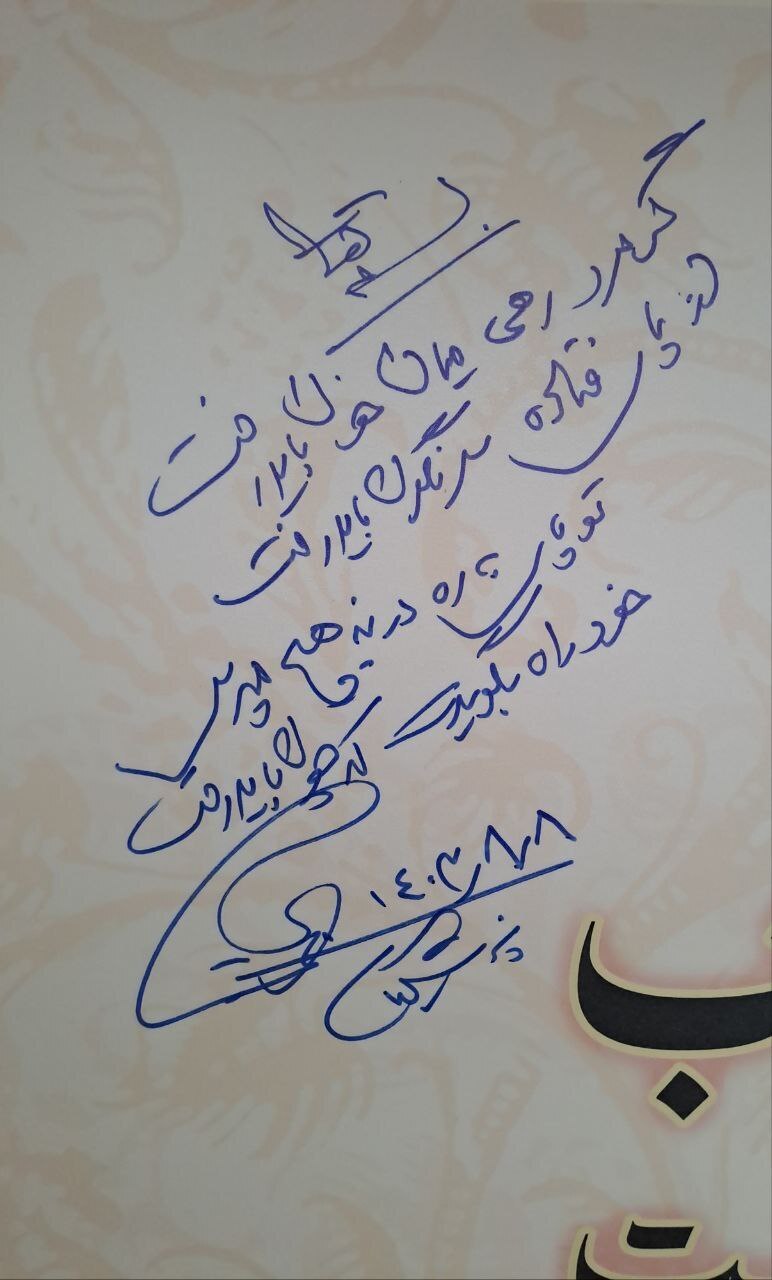 بسمه تعالی
گر مرد رهی میان خون باید رفت
از پای فتاده سرنگون باید رفت
تو پای به ره در نه و هیچ مپرس
خود راه بگویدت که چون باید رفت
۱۴۰۳/۸/۸
ب
ت